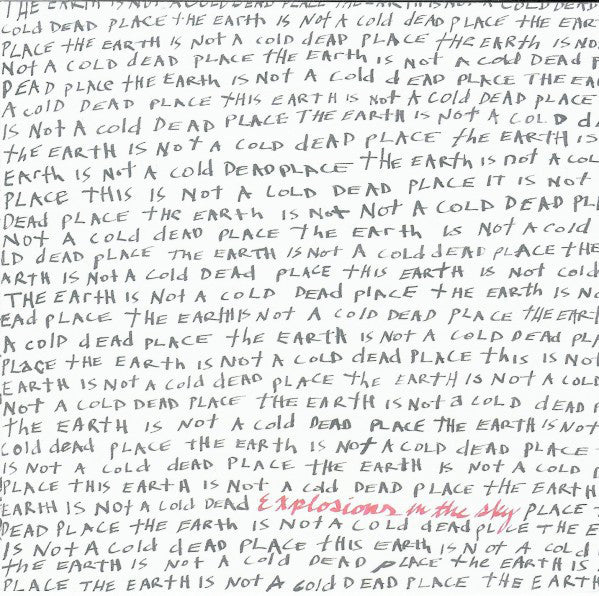 THE EARTH IS NOT A COLD DEAD PLACE THE EARTH IS NOT A COLD DEAD
COLD DEAD PLACE THE EARTH IS NOT A COLD DEAD PLACE THE EAR
PLACE tHE EARTH IS Not A COLD dEAD PLACE THE EARth IS NO
NOt A COLD dEAD PLACE THE EARth IS not a cold DEAD P
DEAD PLACE tHE EARth IS NOt A Cold dEAD PLACE THE EA
A cold DEAD PLACE tHIS EARtH IS Not A COld DEAD PLACE
IS NOt A cold DEAD PLACE THE EARtH IS NOt A COLD d
tHE EARtH IS NOt A COLD dEAD PLACE tHE EARtH IS
EARth IS NOt A cold DEAD PLACE tHE EARtH IS not A COL
PLACE THIS IS NOt A COLD DEAD PLACE IT IS NOt
DEAd PLACE tHE EARth IS NOt NOt A COLD DEAD PL
NOt A COLd dEAD PLACE tHE EARth IS NOt A cold
LD dEAD PLACE THE EARTH IS NOt A cold dEAD PLACE tHE
ARTH IS NOt A Cold DEAd PLACE tHIS EARTH IS NOt cold
THE EARtH IS Not A COLD DEAd plACE tHE EARth IS N
EAd PLACE tHE EARtH IS NOt A COLD DEAD PLACE tHE EARt
A cold DEAD PLACE tHE EARtH IS NOt A COLD DEAd PLA
PLACE tHE EARth IS NOt A COLD dEAD PLACE this IS NOt
EARTH IS NOt A cold dEAD PLACE tHE EARTH IS NOt A COLD
NOt A COLD DEAD PLACE tHE EARTH IS Not a COLD dEAD
tHE EARtH IS NOt A Cold DEAD PLACE tHE EARTH IS NOT
COld dEAd PLACE tHE EARTH IS NOt A COLD dEAD PLACE
IS NOt A cold dEAD PLACE tHE EARTH IS NOt A COLD
PLACE tHIS EARTH IS Not A cold DEAD PLACE tHE EARTH
EARtH IS NOt A Cold DEAD Explosions in the sky PLACE
DEAD PLACE tHE EARTH IS NOt A COLD dEAD plACE tHE E
IS NOt A COLd dEAD PLACE tHIS EARth IS NOt A COLd
tHE EARTH IS NOt A COLd DEAD PLACE tHE EARTH IS
PLACE tHE EARTH IS NOt A COLD DEAD PLACE tHE EARTH